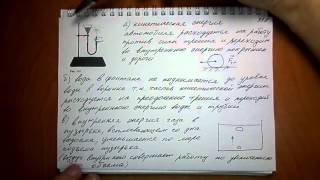 а) кинетическая энергия
автомобиля расходуется на работу
против силы трения и переходит
во внутреннюю энергию покрышек
и дороги
б) вода в фонтане не поднимается до уровня
воды в воронке т.к часть кинетической энергии
расходуется на преодоление трения и переходит
во внутреннюю энергию воды и трубки
в) внутренняя энергия газа в
пузырьке, всплывающем со дна
водоема, уменьшается по мере
подъема пузырька
(воздух внутри совершает работу по увеличению
объема)